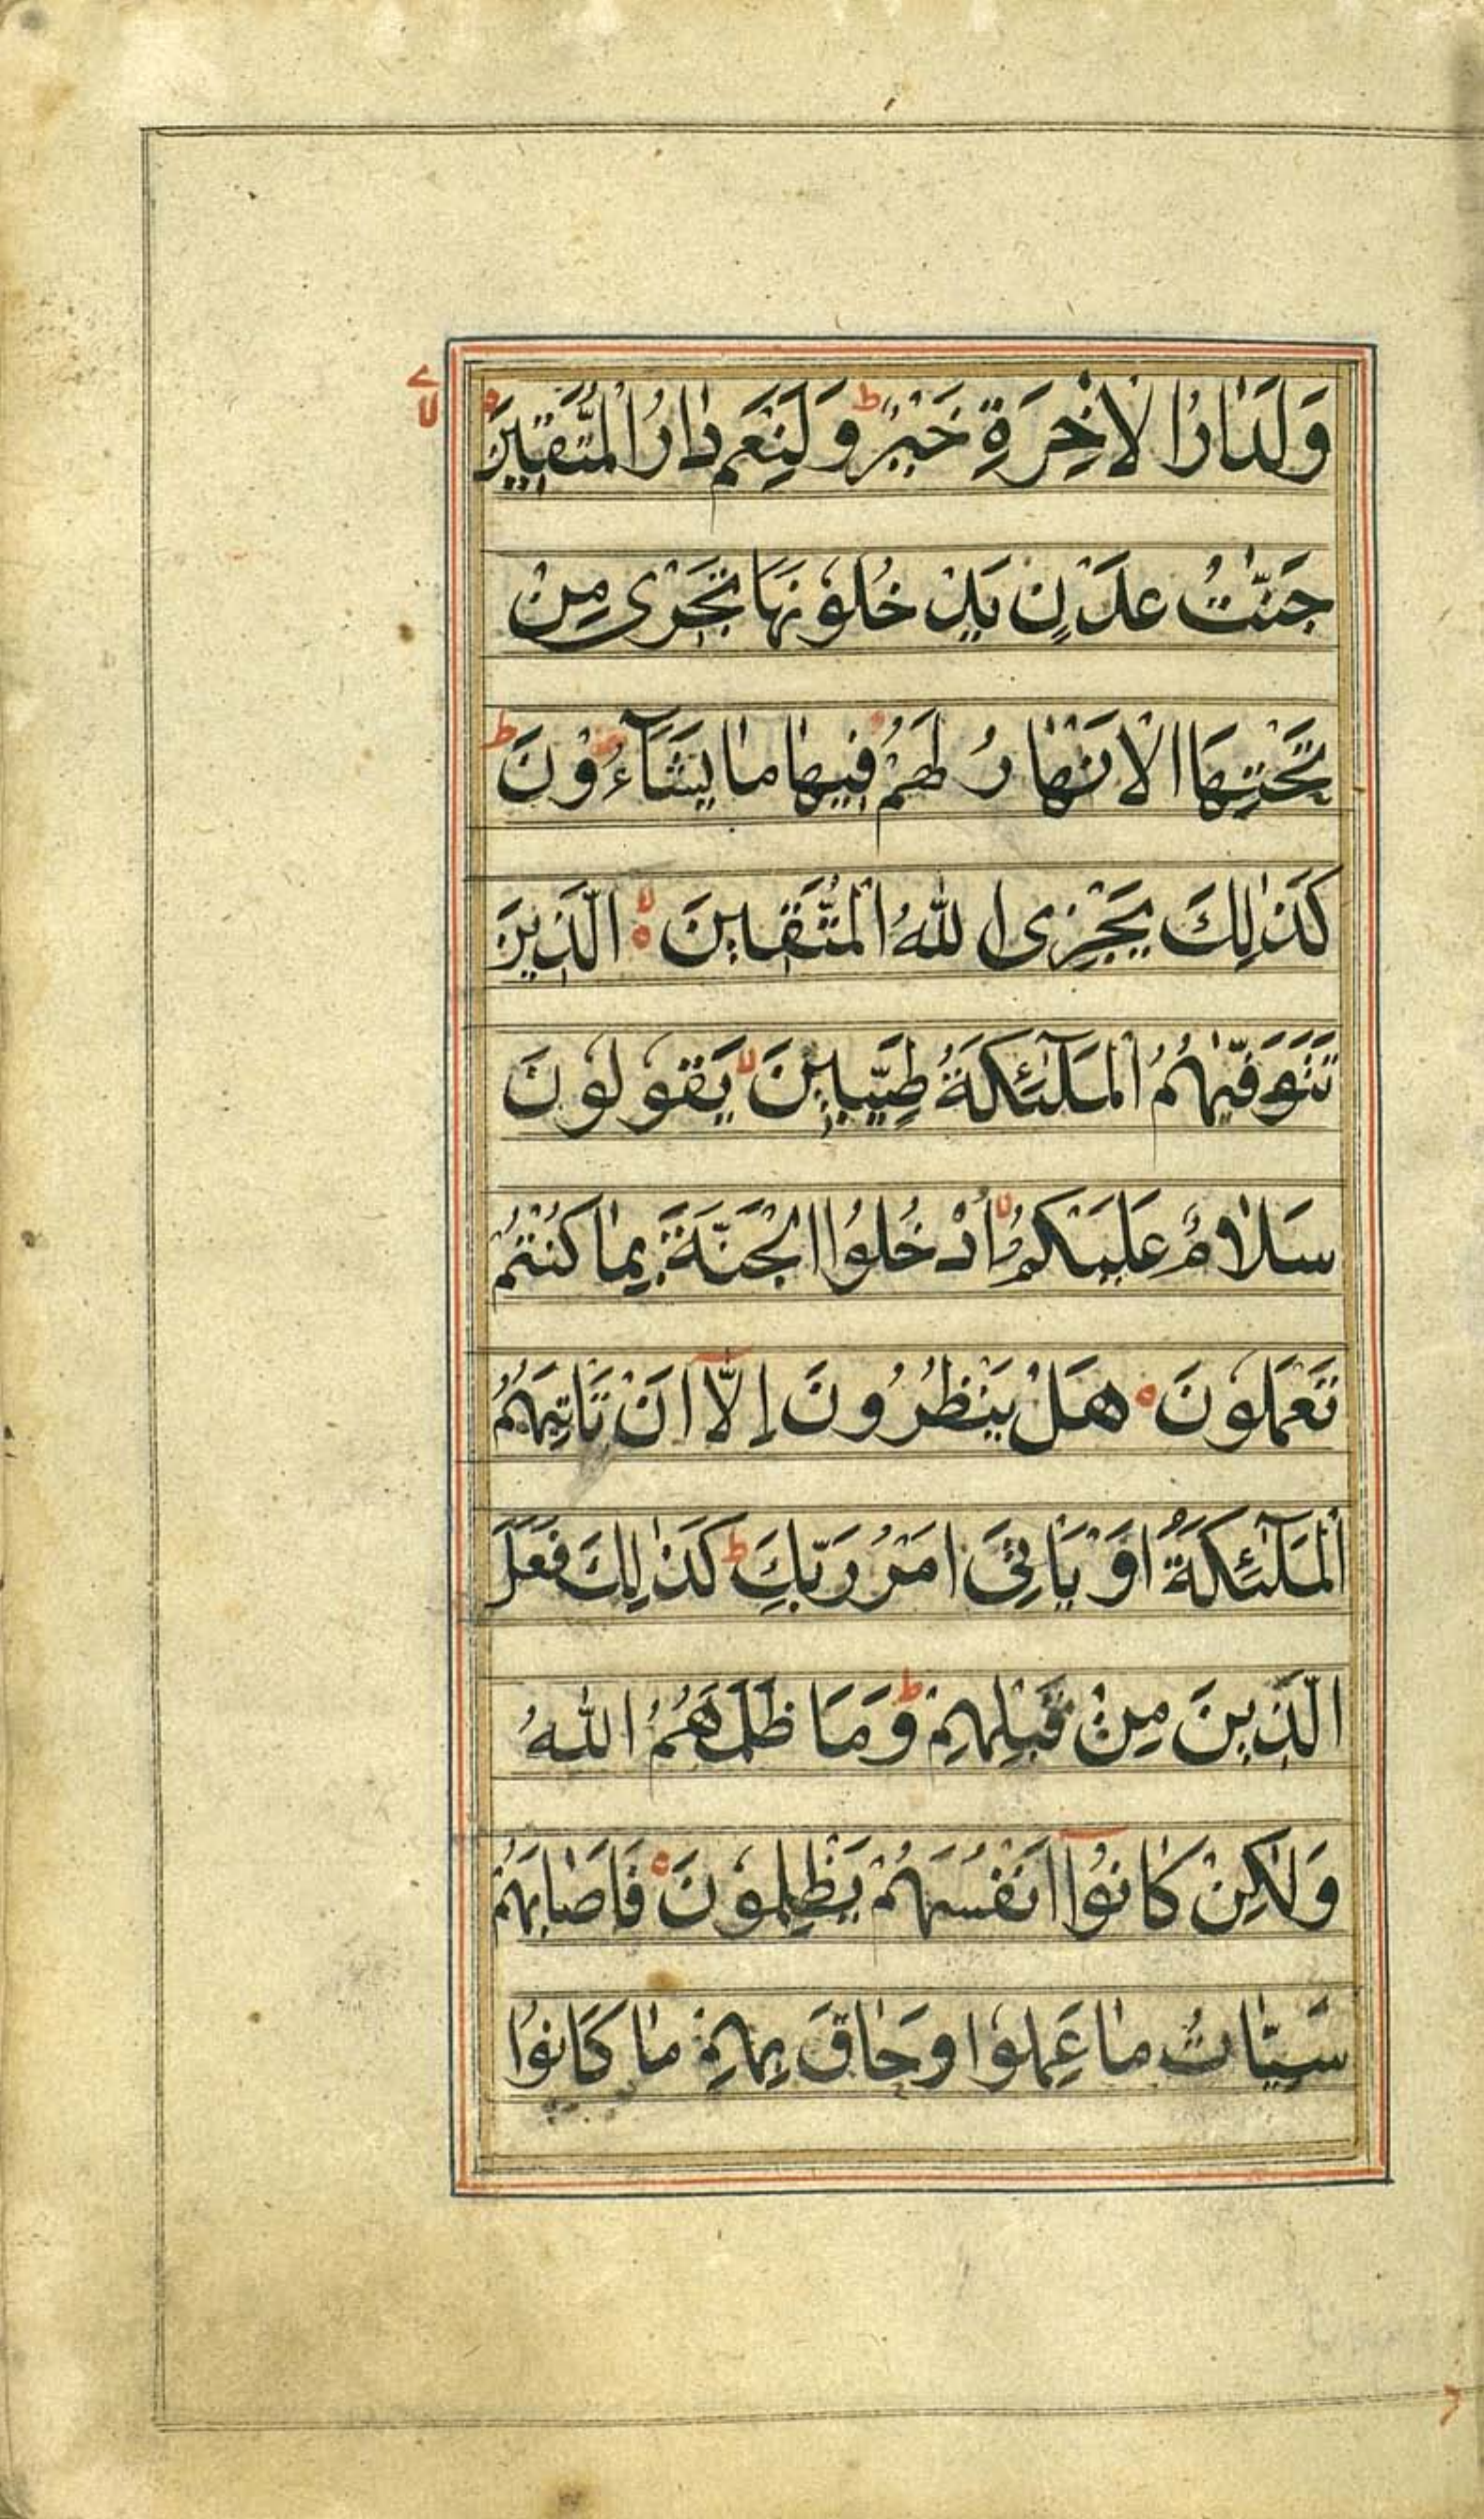 وَلَدَارُ الْاٰخِرَةِ خَيْرٌ ط وَلَنِعْمَ دَارُ الْمُتَّقِيْنَ ه لا
جَنّٰتُ عَدْنٍ يَدْخُلُوْنَهَا تَجْرٰى مِنْ
تَحْتِهَا الْاَنْهَارُ لَهُمْ فِيهَا مَا يَشَآءُوْنَ ط
كَذٰلِكَ يَجْزِى اللّٰهُ الْمُتَّقِينَ ه لا الَّذِينَ
تَتَوَفّٰىهُمُ الْمَلٰٓئِكَةُ طَيِّبِيْنَ لا يَقُولُوْنَ
سَلَامٌ عَلَيْكُمُ لا ادْخُلُوا الْجَنَّةَ بِمَا كُنْتُمْ
تَعْمَلُوْنَ ه هَلْ يَنْظُرُوْنَ اِلَّآ اَنْ تَاْتِيَهُمُ
الْمَلٰٓئِكَةُ اَوْ يَاْتِىَ اَمْرُ رَبِّكَ ط كَذٰلِكَ فَعَلَ
الَّذِيْنَ مِنْ قَبْلِهِمْ ط وَمَا ظَلَمَهُمُ اللّٰهُ
وَلٰكِنْ كَانُوْآ اَنْفُسَهُمْ يَظْلِمُوْنَ ه فَاَصَابَهُمْ
سَيِّاٰتُ مَا عَمِلُوْا وَحَاقَ بِهِمْ مَا كَانُوْا